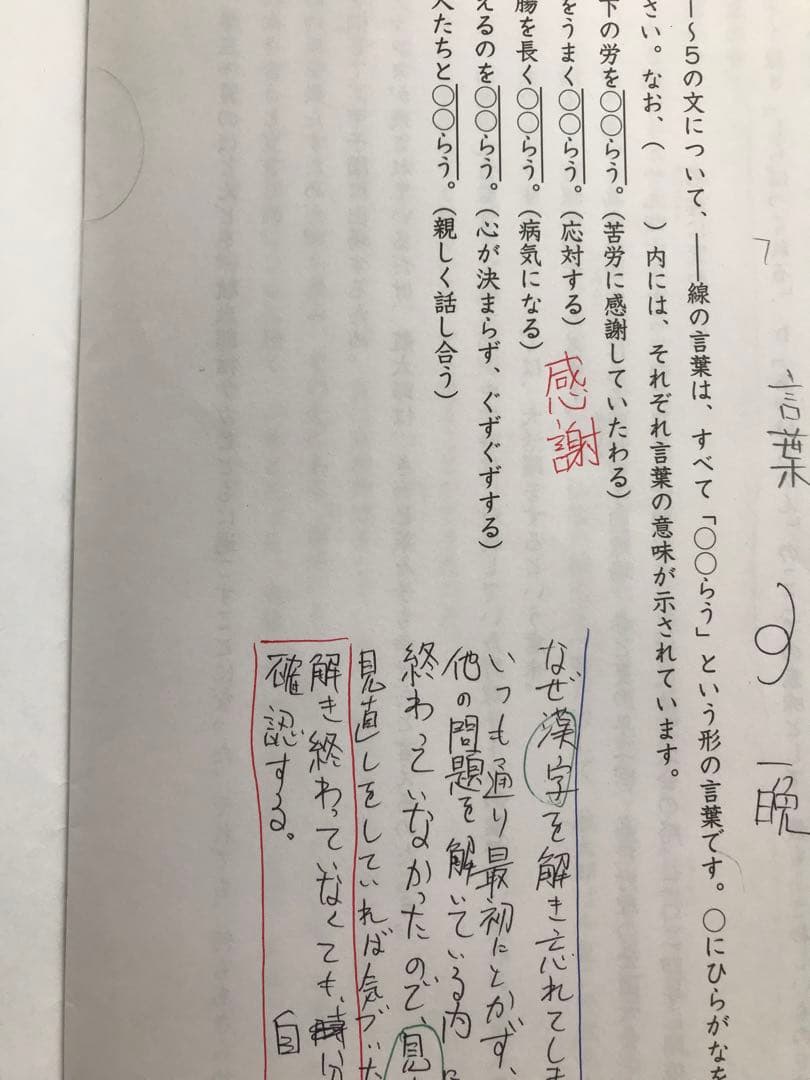 言葉 す 一晩
～5の文について、――線の言葉は、すべて「○○らう」という形の言葉です。○にひらがなを
さい。なお、( )内には、それぞれ言葉の意味が示されています。
下の労を○○らう。(苦労に感謝していたわる)
をうまく○○らう。(応対する)
感謝
腸を長く○○らう。(病気になる)
えるのを○○らう。(心が決まらず、ぐずぐずする)
たちと○○らう。(親しく話し合う)
なぜ漢字を解き忘れてしま
いつも通り最初にとかず、
他の問題を解いている内に
終わっていなかったので、見
見直しをしていれば気づいた
解き終わっていなくても、時分
確認する。 自